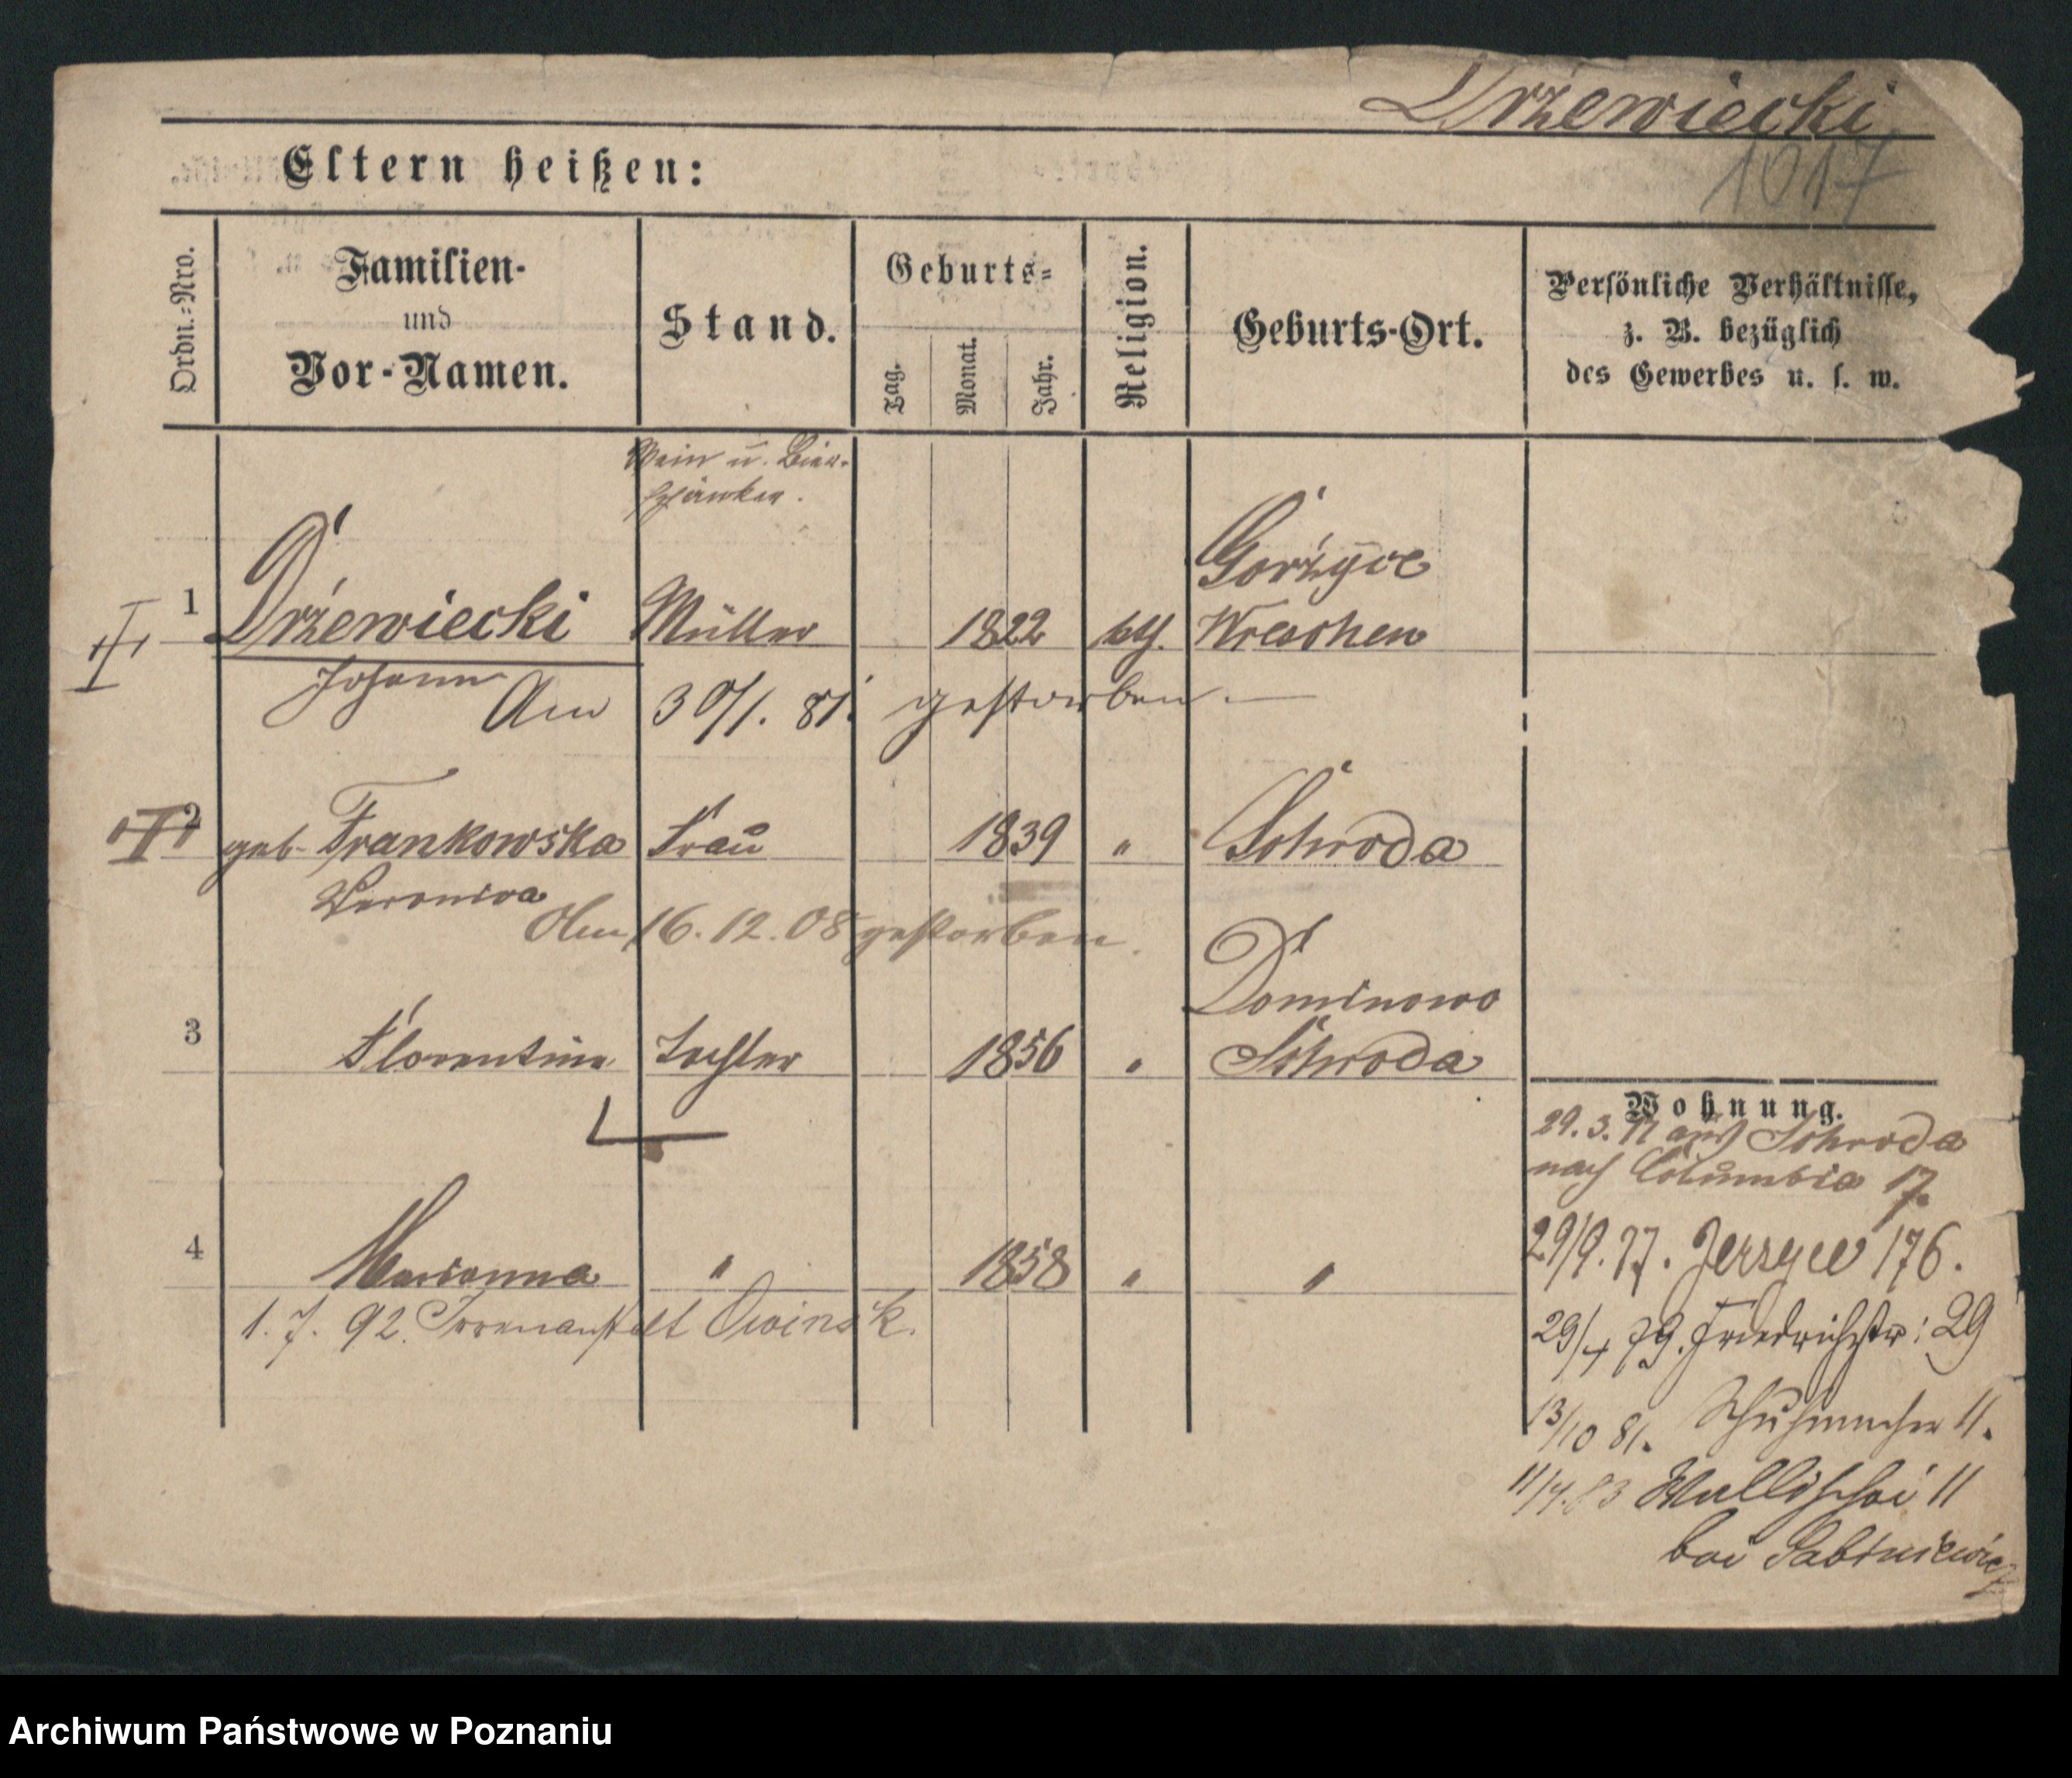 Drzewiecki
1017
Eltern heißen:
Ordn.-Nro.
Familien-
und
Vor-Namen.
Stand.
Geburts-
Tag.
Monat.
Jahr.
Religion.
Geburts-Ort.
Persönliche Verhältnisse,
z. B. bezüglich
des Gewerbes u. s. w.
Wein u. Bier-
schänker.
Gorzyce
1 Drzewiecki Müller 1822 kth. Wreschen
Johann
Am 30/1. 81. gestorben.
2 geb. Frankowska Frau 1839 " Schroda
Veronica
Am 16.12.08 gestorben.
Dominowo
3 Florentine Tochter 1856 " Schroda
4 Marianna " 1858 " "
1. 7. 92. Irrenanstalt Owinsk.
Wohnung.
29. 3. 77 aus Schroda
nach Columbia 17.
29/9. 77. Jerzyce 176.
29/4 79. Friedrichstr: 29
13/10 81. Schuhmacher 11.
11/4. 83 Wallischei 11
bei
Archiwum Państwowe w Poznaniu